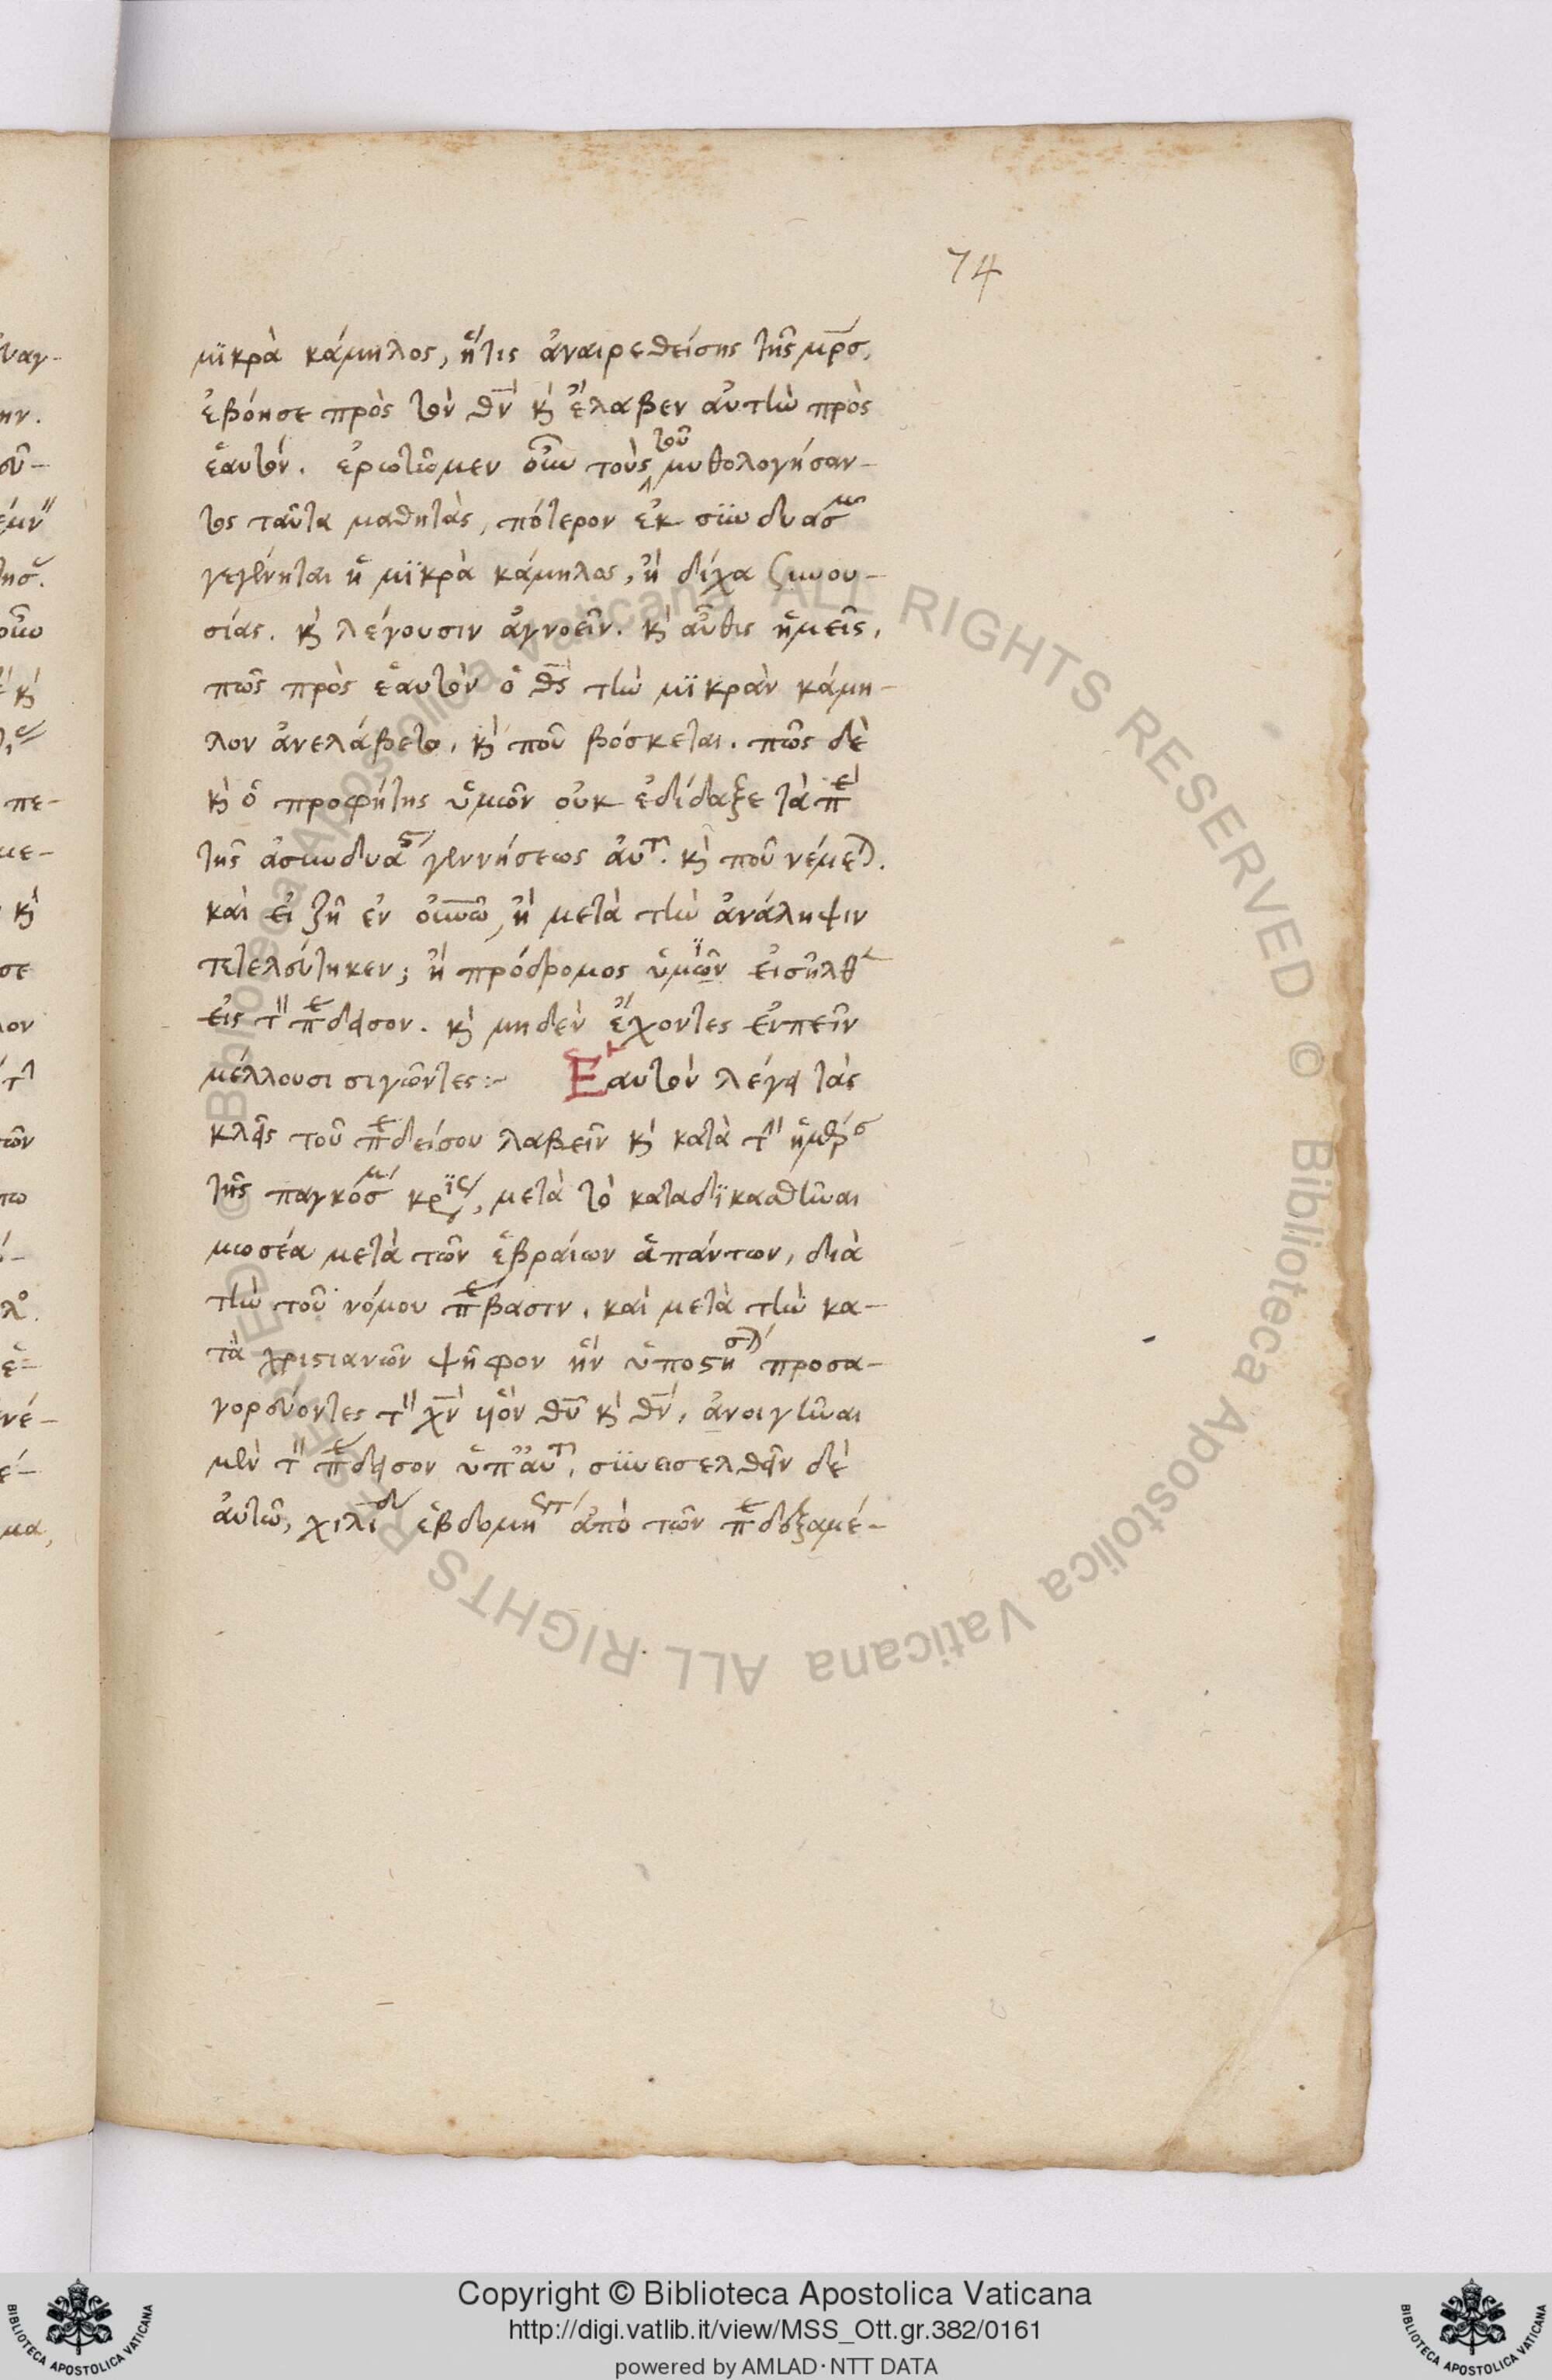 74
μϊκρὰ κάμηλος, ἥτις ἀναιρεθείσης τῆς μρ̅ς,
ἐβόησε πρὸς τὸν θν̅ κ̀ ἔλαβεν αὐτὴν πρὸς
ἑαυτόν. ἐρωτῶμεν οὖν τοὺς τοῦ μυθολογήσαν-
τος ταῦτα μαθητὰς, πότερον ἐκ συνδυασμ
γεγέννηται ἡ μϊκρὰ κάμηλος, ἢ δίχα συνου-
σίας. κ̀ λέγουσιν ἀγνοεῖν. κ̀ αὖθις ἡμεῖς,
πῶς πρὸς ἑαυτὸν ὁ θς̅ τὴν μϊκρὰν κάμη-
λον ἀνελάβετο, κ̀ ποῦ βόσκεται. πῶς δὲ
κ̀ ὁ προφήτης ὑμῶν οὐκ ἐδίδαξε τὰ π
τῆς ἀσυνδυάς γεννήσεως αὐτ. κ̀ ποῦ νέμε.
καὶ εἰ ζῆ ἐν οὐνῶ, ἢ μετὰ τὴν ἀνάληψιν
τετελεύτηκεν; ἢ πρόδρομος ὑμῶν εἰσῆλθε
εἰς τ πδεισον. κ̀ μηδὲν ἔχοντες εἰπεῖν
μέλλουσι σιγῶντες:~ Ἑαυτὸν λέγει τὰς
κλεῖς τοῦ πδείσου λαβεῖν κ̀ κατὰ τ ἡμέρ
τῆς παγκοσμ κρίς, μετὰ τὸ καταδϊκασθῆναι
μωσέα μετὰ τῶν ἑβραίων ἁπάντων, διὰ
τὴν τοῦ νόμου πβασιν. καὶ μετὰ τὴν κα-
τὰ χριστιανῶν ψῆφον ἣν ὑποστήσ προσα-
γορεύοντες τ χν̅ υἱὸν θυ̅ κ̀ θν̅, ἀνοιγῆναι
μὲν τ πδεισον ὑπ' αὐτ, συνεισελθεῖν δὲ
αὐτῶ, χιλιδ ἑβδομηντ ἀπὸ τῶν πδεξαμέ-
Copyright © Biblioteca Apostolica Vaticana
http://digi.vatlib.it/view/MSS_Ott.gr.382/0161
powered by AMLAD·NTT DATA